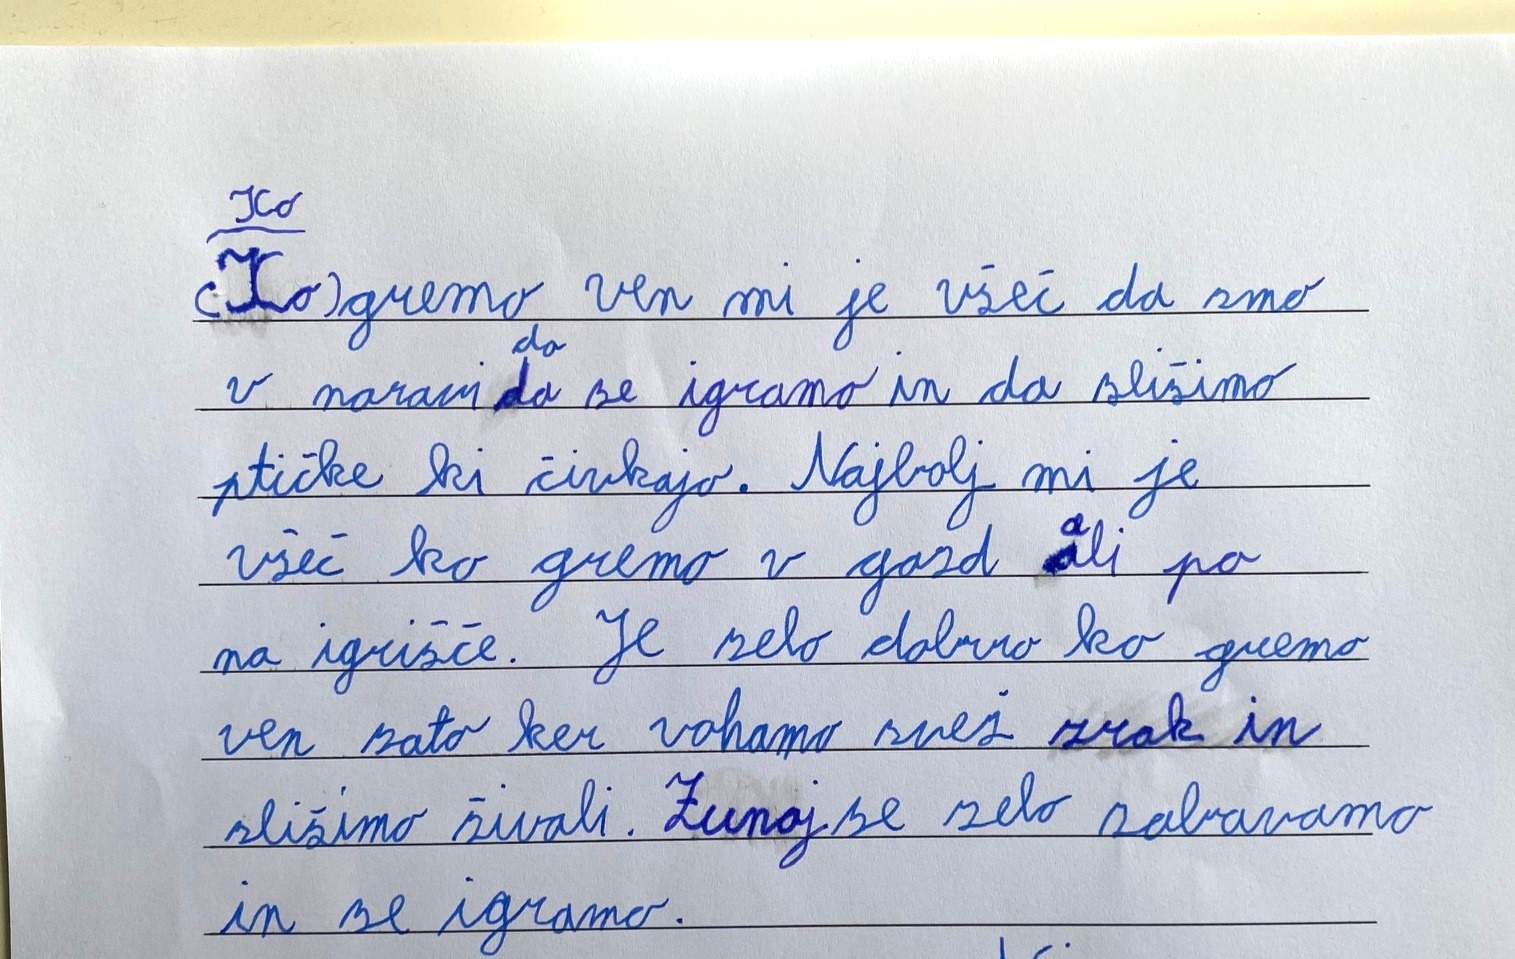 Ko
(Ko) gremo ven mi je všeč da smo
da
v naravi da se igramo in da slišimo
ptičke ki čivkajo. Najbolj mi je
a
všeč ko gremo v gozd ali pa
na igrišče. Je zelo dobro ko gremo
ven zato ker vohamo svež zrak in
slišimo živali. Zunaj se zelo zabavamo
in se igramo.